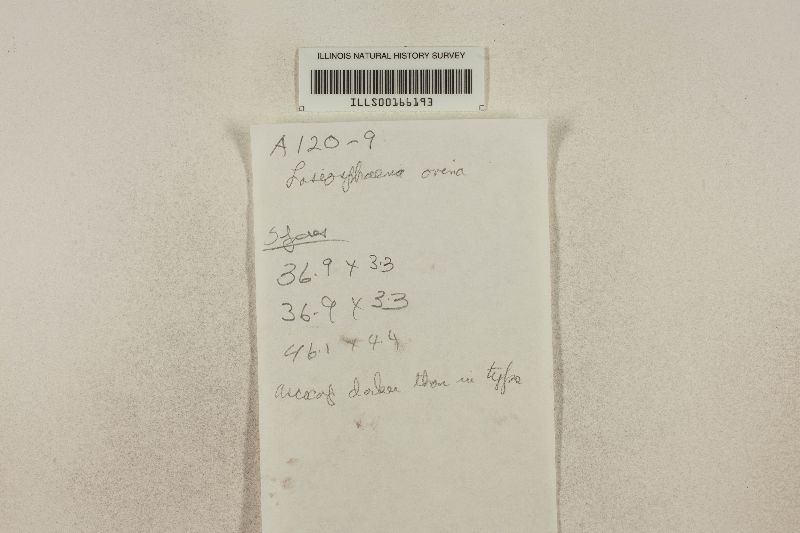 ILLINOIS NATURAL HISTORY SURVEY
ILLS00166193
A 120-9
Lasiosphaera ovina
Spores
36.9 x 3.3
36.9 x 3.3
46.1 x 4.4
darker than in type